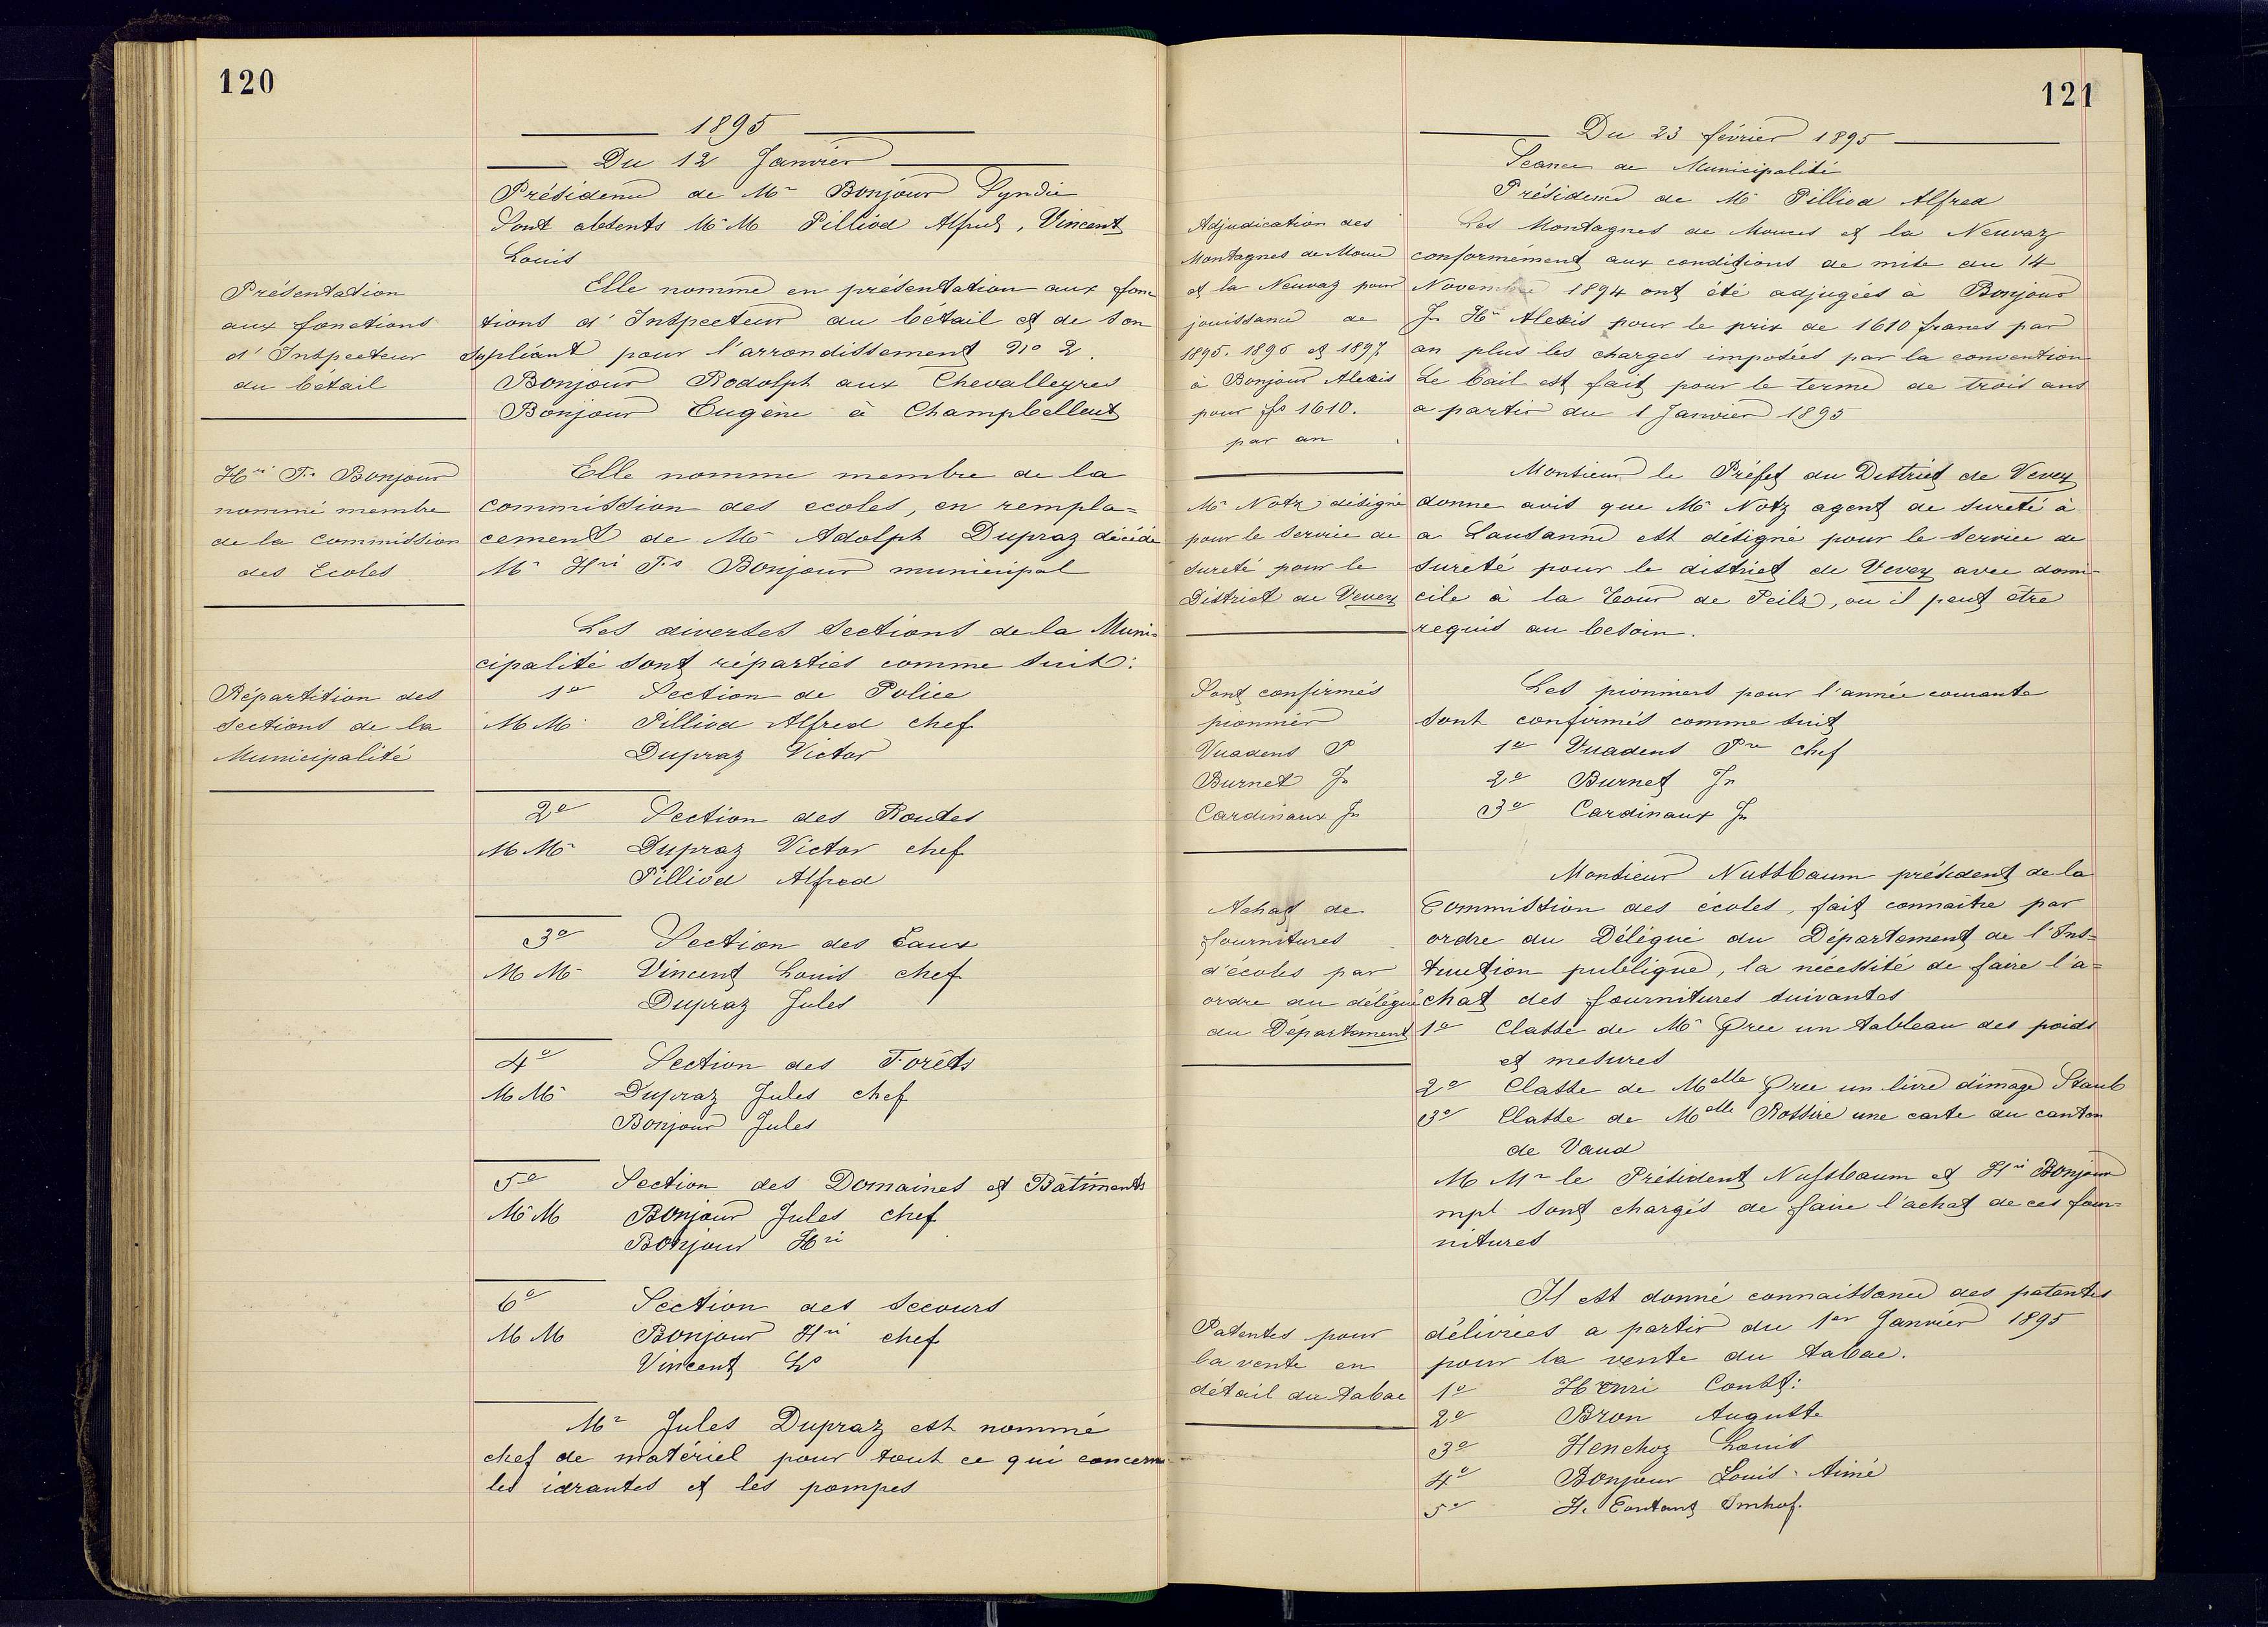 120
1895
Du 12 Janvier
Présidence de Mr Bonjour Syndic
Sont absents M M Pilliod Alfred, Vincent
Louis
Présentation
aux fonctions
d'Inspecteur
du bétail
Elle nomme en présentation aux fonc
tions d'Inspecteur du bétail et de son
supléant pour l'arrondissement No 2.
Bonjour Rodolph aux Chevalleyres
Bonjour Eugène à Champbellent
Hri Fs Bonjour
nommé membre
de la Commission
des Ecoles
Elle nomme membre de la
commission des ecoles, en rempla=
cement de Mr Adolph Dupraz décédé
Mr Hri Fs Bonjour municipal
Répartition des
sections de la
Municipalité
Les diverses sections de la Muni=
cipalité sont réparties comme suit:
1o Section de Police
M M Pilliod Alfred chef
Dupraz Victor
2o Section des Routes
M M Dupraz Victor chef
Pilliod Alfred
3o Section des Eaux
M M Vincent Louis chef
Dupraz Jules
4o Section des Forêts
M M Dupraz Jules chef
Bonjour Jules
5o Section des Domaines et Bâtiments
M M Bonjour Jules chef
Bonjour Hri
6o Section des Secours
M M Bonjour Hri chef
Vincent Ls
Mr Jules Dupraz est nommé
chef de matériel pour tout ce qui concerne
les idrantes et les pompes
121
Du 23 février 1895
Seance de Municipalité
Présidence de Mr Pilliod Alfred
Adjudication des
Montagnes de Mouces
et la Neuvaz pour
jouissance de
1895. 1896 et 1897
à Bonjour Alexis
pour fs 1610.
par an
Les Montagnes de Mouces et la Neuvaz
conformément aux conditions de mise du 14
Novembre 1894 ont été adjugées à Bonjour
Jn Hri Alexis pour le prix de 1610 francs par
an plus les charges imposées par la convention
Le bail est fait pour le terme de trois ans
a partir du 1 Janvier 1895
Mr Notz désigné
pour le service de
sureté pour le
District de Vevey
Monsieur le Préfet du District de Vevey
donne avis que Mr Notz agent de sureté à
a Lausanne est désigné pour le service de
sureté pour le district de Vevey avec domi-
cile à la Tour de Peilz, ou il peut être
requis au besoin.
Sont confirmés
pionnier
Vuadens P
Burnet Jn
Cardinaux Jn
Les pionniers pour l'année courante
sont confirmés comme suit
1o Vuadens Pre chef
2o Burnet Jn
3o Cardinaux Jn
Achat de
fournitures
d'écoles par
ordre du délégué
du Département
Monsieur Nussbaum président de la
Commission des écoles, fait connaître par
ordre du Délégué du Département de l'Ins=
truction publique, la nécessité de faire l'a=
chat des fournitures suivantes
1o Classe de Mr Pree un tableau des poids
et mesures
2o Classe de Melle Pree un livre d'image Staub
3o Classe de Melle Rossire une carte du canton
de Vaud
M Mr le Président Nussbaum et Hri Bonjour
mpl sont chargés de faire l'achat de ces four=
nitures
Patentes pour
la vente en
détail du tabac
Il est donné connaissance des patentes
délivrées a partir du 1er Janvier 1895
pour la vente du tabac.
1o Henri Const:
2o Bron Auguste
3o Henchoz Louis
4o Bonjour Louis-Aimé
5o H. Contant Imhof.